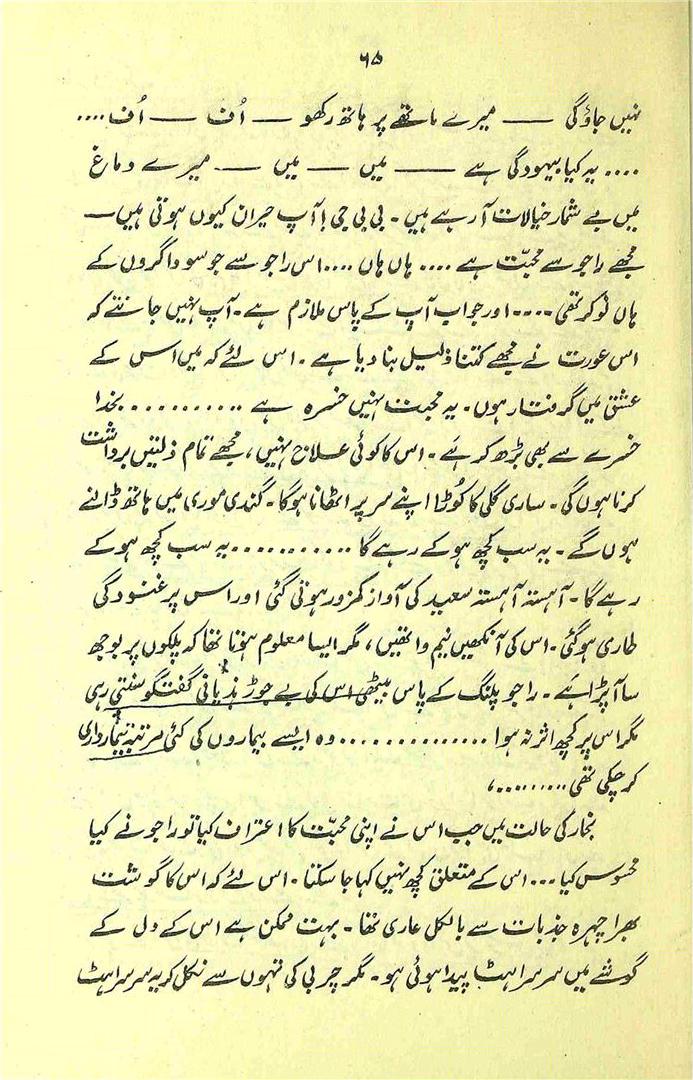 ۶۵
نہیں جاؤ گی ـــــ میرے ماتھے پر ہاتھ رکھو ــــ اُف ــــ اُف ....
.... یہ کیا بیہودگی ہے ـــــ میں ـــــ میں ـــــ میرے دماغ
میں بے شمار خیالات آ رہے ہیں۔ بی بی جی! آپ حیران کیوں ہوتی ہیں ــــ
مجھے راجو سے محبّت ہے .... ہاں ہاں .... اس راجو سے جو سوداگروں کے
ہاں نوکر تھی .... اور جواب آپ کے پاس ملازم ہے۔ آپ نہیں جانتے کہ
اس عورت نے مجھے کتنا ذلیل بنا دیا ہے۔ اس لئے کہ میں اس کے
عشق میں گرفتار ہوں۔ یہ محبت نہیں خسرہ ہے ........... بخدا
خسرے سے بھی بڑھ کر ہے۔ اس کا کوئی علاج نہیں، مجھے تمام ذلتیں برداشت
کرنا ہوں گی۔ ساری گلی کا کُوڑا اپنے سر پر اٹھانا ہوگا۔ گندی موری میں ہاتھ ڈالنے
ہوں گے۔ یہ سب کچھ ہو کے رہے گا ........... یہ سب کچھ ہو کے
رہے گا۔ آہستہ آہستہ سعید کی آواز کمزور ہوتی گئی اور اس پر غنودگی
طاری ہو گئی۔ اس کی آنکھیں نیم وا تھیں، مگر ایسا معلوم ہوتا تھا کہ پلکوں پر بوجھ
سا آ پڑا ہے۔ راجو پلنگ کے پاس بیٹھی اس کی بے جوڑ ہذیانی گفتگو سنتی رہی
مگر اس پر کچھ اثر نہ ہوا ............. وہ ایسے بیماروں کی کئی مرتبہ تیمارداری
کر چکی تھی ........،
بخار کی حالت میں جب اس نے اپنی محبّت کا اعتراف کیا تو راجو نے کیا
محسوس کیا ... اس کے متعلق کچھ نہیں کہا جا سکتا۔ اس لئے کہ اس کا گوشت
بھرا چہرہ جذبات سے بالکل عاری تھا۔ بہت ممکن ہے اس کے دل کے
گوشے میں سرسراہٹ پیدا ہوئی ہو۔ مگر چربی کی تہوں سے نکل کر یہ سرسراہٹ